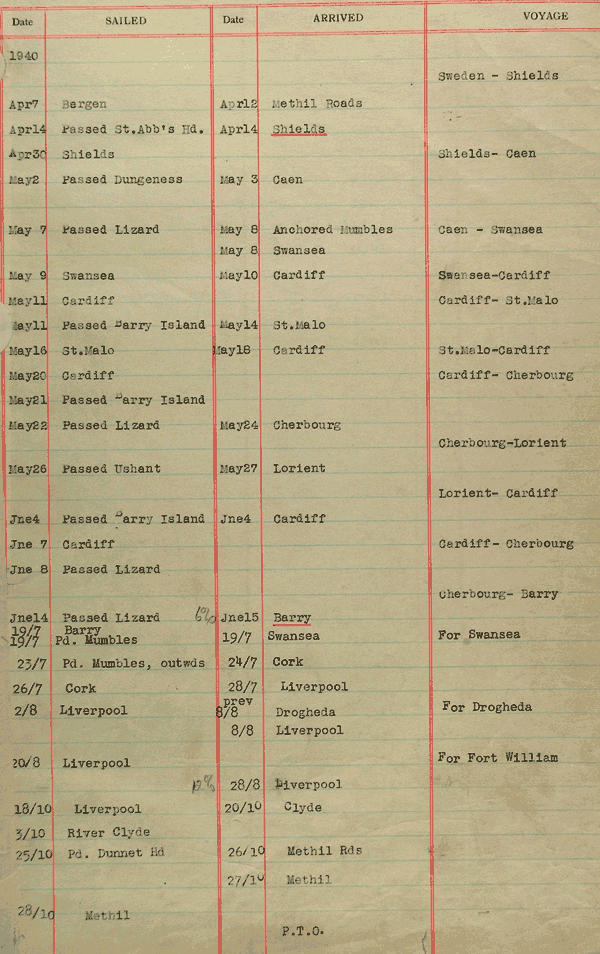 Date SAILED Date ARRIVED VOYAGE
1940
Sweden - Shields
Apr7 Bergen Apr12 Methil Roads
Apr14 Passed St.Abb's Hd. Apr14 Shields
Apr30 Shields Shields- Caen
May2 Passed Dungeness May 3 Caen
May 7 Passed Lizard May 8 Anchored Mumbles Caen - Swansea
May 8 Swansea
May 9 Swansea May10 Cardiff Swansea-Cardiff
May11 Cardiff Cardiff- St.Malo
May11 Passed Barry Island May14 St.Malo
May16 St.Malo May18 Cardiff St.Malo-Cardiff
May20 Cardiff Cardiff- Cherbourg
May21 Passed Barry Island
May22 Passed Lizard May24 Cherbourg
Cherbourg-Lorient
May26 Passed Ushant May27 Lorient
Lorient- Cardiff
Jne4 Passed Barry Island Jne4 Cardiff
Jne 7 Cardiff Cardiff- Cherbourg
Jne 8 Passed Lizard
Cherbourg- Barry
Jne14 Passed Lizard Jne15 Barry
19/7 Barry
19/7 Pd. Mumbles 19/7 Swansea For Swansea
23/7 Pd. Mumbles, outwds 24/7 Cork
26/7 Cork 28/7 Liverpool
prev
2/8 Liverpool 8/8 Drogheda For Drogheda
8/8 Liverpool
20/8 Liverpool For Fort William
28/8 Liverpool
18/10 Liverpool 20/10 Clyde
3/10 River Clyde
25/10 Pd. Dunnet Hd 26/10 Methil Rds
27/10 Methil
28/10 Methil
P.T.O.